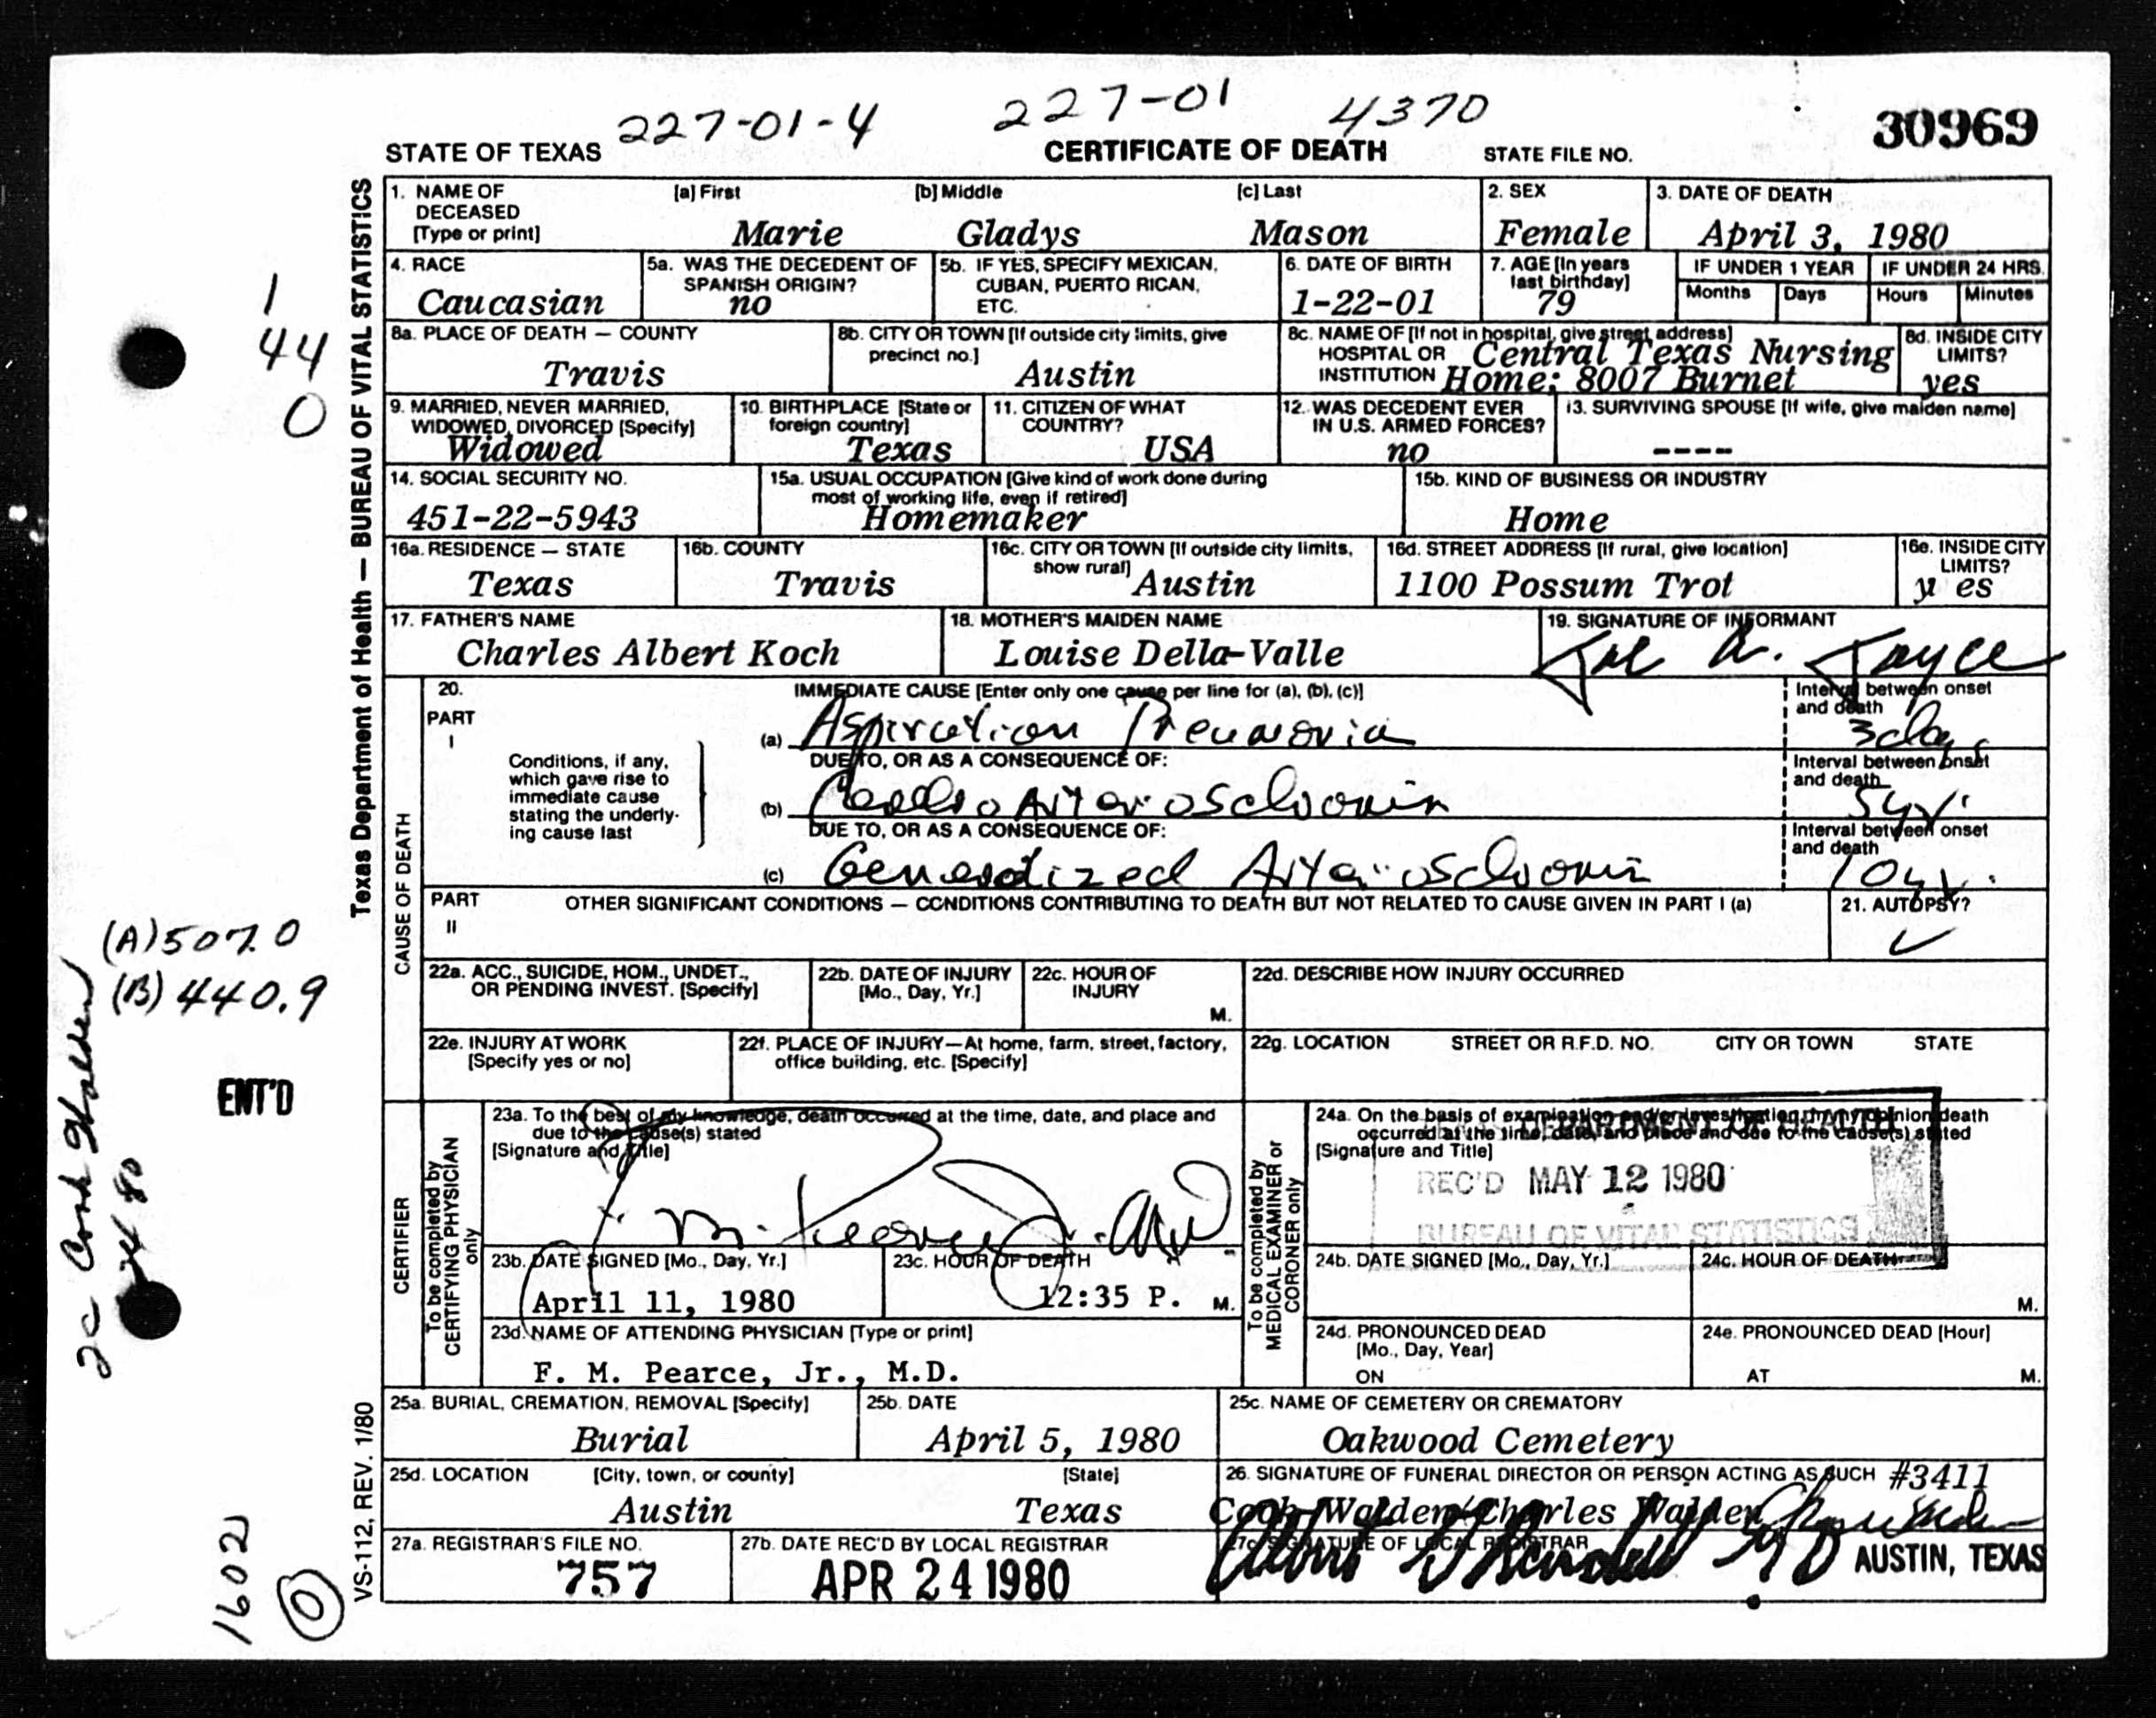 227-01-4 227-01 4370 30969
STATE OF TEXAS CERTIFICATE OF DEATH STATE FILE NO.
Texas Department of Health — BUREAU OF VITAL STATISTICS
1. NAME OF DECEASED [Type or print] [a] First [b] Middle [c] Last 2. SEX 3. DATE OF DEATH
Marie Gladys Mason Female April 3, 1980
4. RACE 5a. WAS THE DECEDENT OF SPANISH ORIGIN? 5b. IF YES, SPECIFY MEXICAN, CUBAN, PUERTO RICAN, ETC. 6. DATE OF BIRTH 7. AGE [In years last birthday] IF UNDER 1 YEAR IF UNDER 24 HRS.
Months Days Hours Minutes
Caucasian no 1-22-01 79
1
44
0
8a. PLACE OF DEATH — COUNTY 8b. CITY OR TOWN [If outside city limits, give precinct no.] 8c. NAME OF [If not in hospital, give street address] HOSPITAL OR INSTITUTION 8d. INSIDE CITY LIMITS?
Travis Austin Central Texas Nursing Home; 8007 Burnet yes
9. MARRIED, NEVER MARRIED, WIDOWED, DIVORCED [Specify] 10. BIRTHPLACE [State or foreign country] 11. CITIZEN OF WHAT COUNTRY? 12. WAS DECEDENT EVER IN U.S. ARMED FORCES? 13. SURVIVING SPOUSE [If wife, give maiden name]
Widowed Texas USA no ----
14. SOCIAL SECURITY NO. 15a. USUAL OCCUPATION [Give kind of work done during most of working life, even if retired] 15b. KIND OF BUSINESS OR INDUSTRY
451-22-5943 Homemaker Home
16a. RESIDENCE — STATE 16b. COUNTY 16c. CITY OR TOWN [If outside city limits, show rural] 16d. STREET ADDRESS [If rural, give location] 16e. INSIDE CITY LIMITS?
Texas Travis Austin 1100 Possum Trot y es
17. FATHER'S NAME 18. MOTHER'S MAIDEN NAME 19. SIGNATURE OF INFORMANT
Charles Albert Koch Louise Della-Valle Joe A. Joyce
CAUSE OF DEATH
20. IMMEDIATE CAUSE [Enter only one cause per line for (a), (b), (c)] Interval between onset and death
PART I
(a) Aspiration Pneumonia 3 days
Conditions, if any, which gave rise to immediate cause stating the underlying cause last
DUE TO, OR AS A CONSEQUENCE OF: Interval between onset and death
(b) 5 yr.
DUE TO, OR AS A CONSEQUENCE OF: Interval between onset and death
(c) Generalized 10 yr.
PART II OTHER SIGNIFICANT CONDITIONS — CONDITIONS CONTRIBUTING TO DEATH BUT NOT RELATED TO CAUSE GIVEN IN PART I (a) 21. AUTOPSY?
(A) 507.0
(B) 440.9
22a. ACC., SUICIDE, HOM., UNDET., OR PENDING INVEST. [Specify] 22b. DATE OF INJURY [Mo., Day, Yr.] 22c. HOUR OF INJURY M. 22d. DESCRIBE HOW INJURY OCCURRED
22e. INJURY AT WORK [Specify yes or no] 22f. PLACE OF INJURY—At home, farm, street, factory, office building, etc. [Specify] 22g. LOCATION STREET OR R.F.D. NO. CITY OR TOWN STATE
ENT'D
CERTIFIER
To be completed by CERTIFYING PHYSICIAN only
23a. To the best of my knowledge, death occurred at the time, date, and place and due to the cause(s) stated
[Signature and Title]
To be completed by MEDICAL EXAMINER or CORONER only
24a. On the basis of examination and/or investigation, in my opinion death occurred at the time, date, and place and due to the cause(s) stated
[Signature and Title]
DEPARTMENT OF HEALTH
REC'D MAY 12 1980
BUREAU OF VITAL STATISTICS
23b. DATE SIGNED [Mo., Day, Yr.] 23c. HOUR OF DEATH 24b. DATE SIGNED [Mo., Day, Yr.] 24c. HOUR OF DEATH
April 11, 1980 12:35 P. M. M.
23d. NAME OF ATTENDING PHYSICIAN [Type or print] 24d. PRONOUNCED DEAD [Mo., Day, Year] 24e. PRONOUNCED DEAD [Hour]
F. M. Pearce, Jr., M.D. ON AT M.
25a. BURIAL, CREMATION, REMOVAL [Specify] 25b. DATE 25c. NAME OF CEMETERY OR CREMATORY
Burial April 5, 1980 Oakwood Cemetery
25d. LOCATION [City, town, or county] [State] 26. SIGNATURE OF FUNERAL DIRECTOR OR PERSON ACTING AS SUCH #3411
Austin Texas Cook-Walden/Charles Walden
27a. REGISTRAR'S FILE NO. 27b. DATE REC'D BY LOCAL REGISTRAR 27c. SIGNATURE OF LOCAL REGISTRAR
757 APR 24 1980 AUSTIN, TEXAS
VS-112, REV. 1/80
1602
0